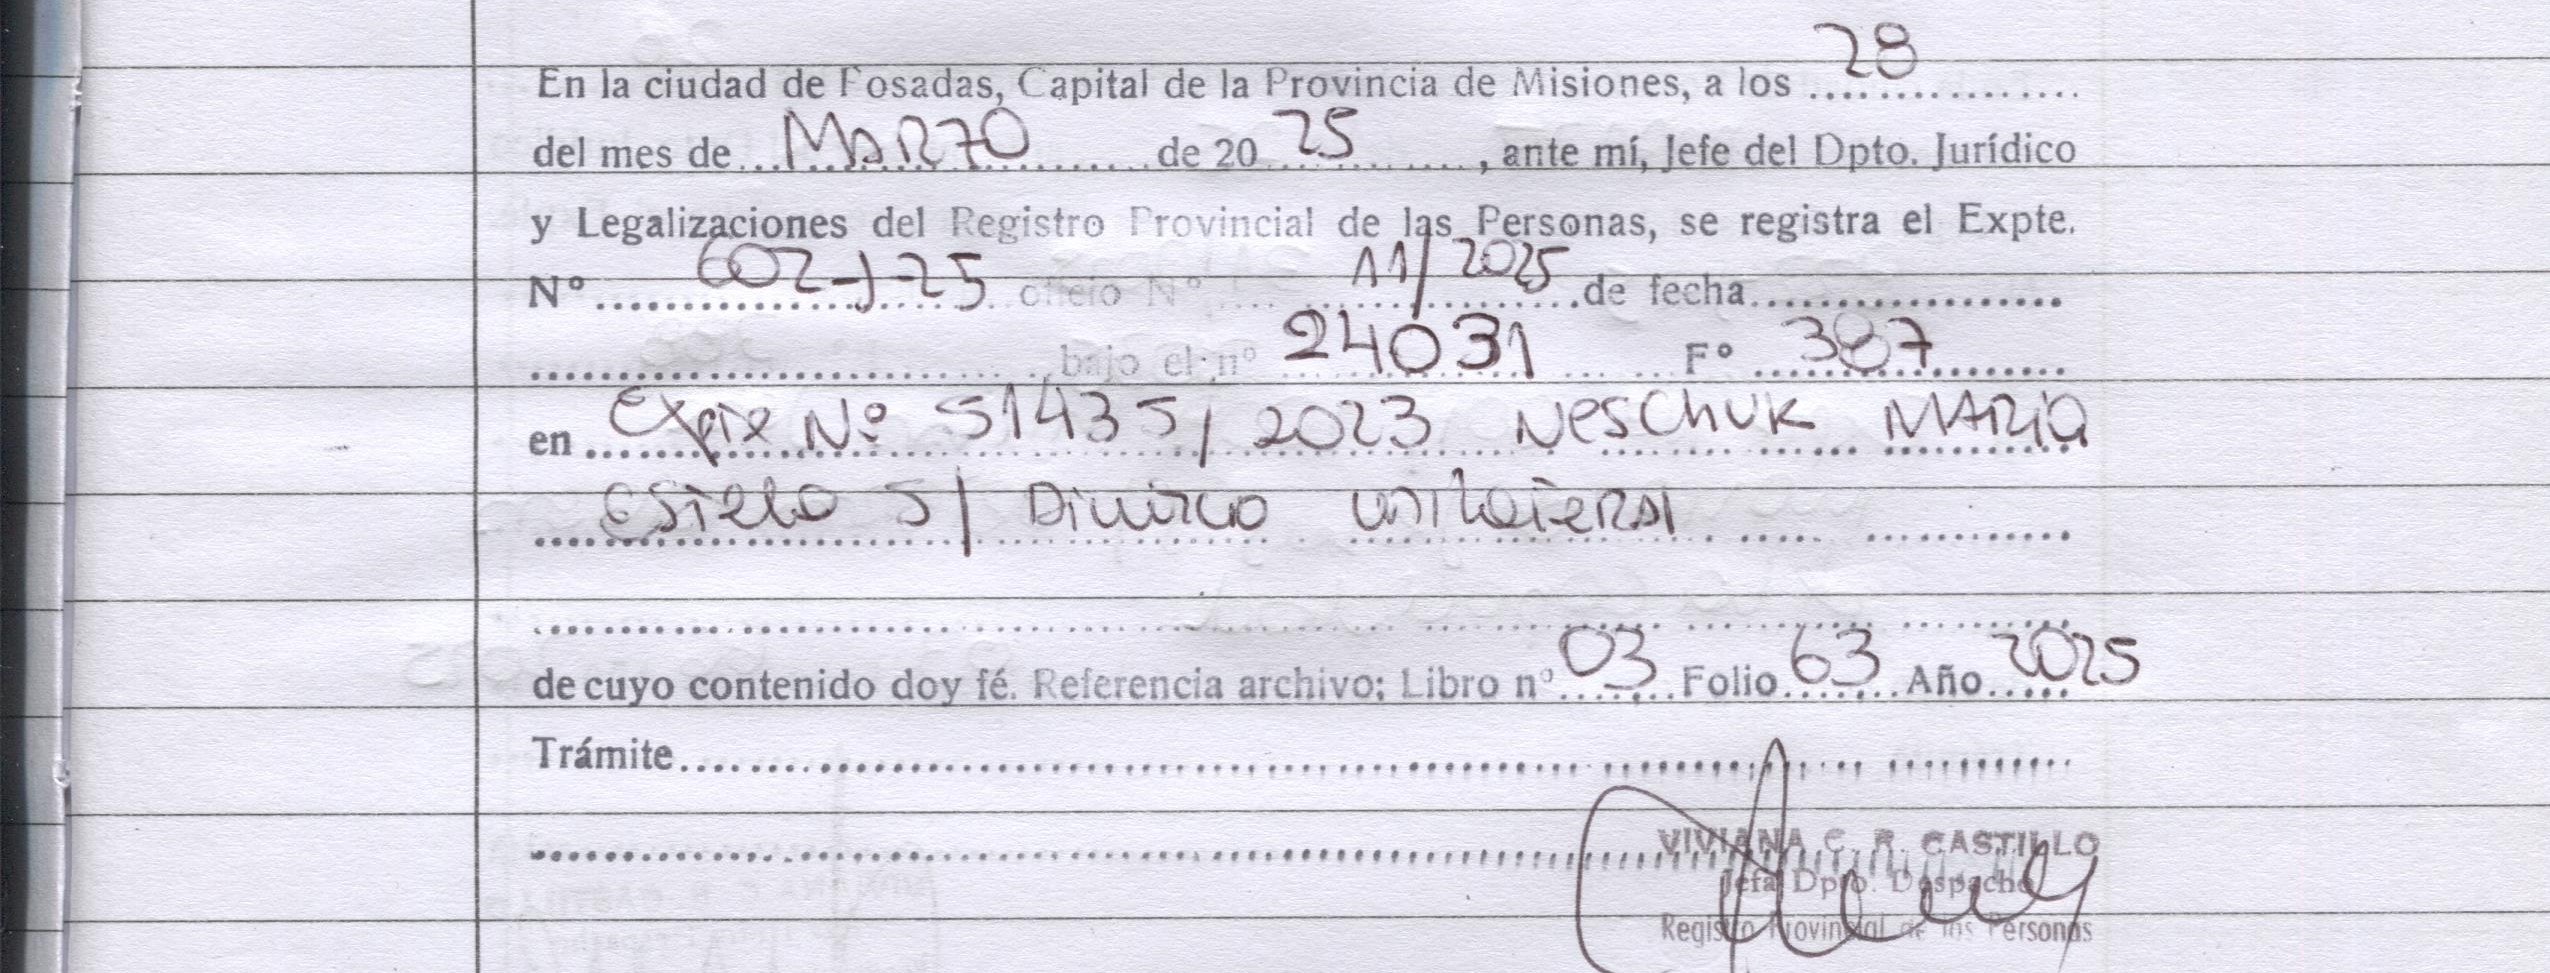 En la ciudad de Posadas, Capital de la Provincia de Misiones, a los 28
del mes de MARZO de 20 25, ante mí, Jefe del Dpto. Jurídico
y Legalizaciones del Registro Provincial de las Personas, se registra el Expte.
Nº 602-J-25 oficio Nº 11/2025 de fecha
bajo el nº 24031 Fº 387
en Expte Nº 51435/2023 Neschuk MARIA
Estela S/ Divorcio unilateral
de cuyo contenido doy fé. Referencia archivo: Libro nº 03 Folio 63 Año 2025
Trámite
VIVIANA C. R. CASTILLO
Jefa Dpto. Despacho
Registro Provincial de las Personas